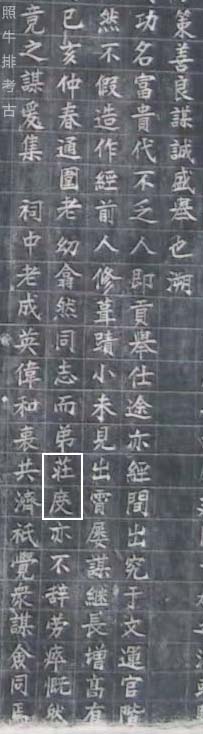 策善良謀誠盛舉也溯
功名富貴代不乏人即貢舉仕途亦經間出究于文運官階
然不假造作經前人修葺蹟小未見出霄屢謀繼長增高有
己亥仲春通圍老幼翕然同志而弟莊庋亦不辞劳瘁慨然
竟之謀爰集 祠中老成英偉和衷共濟祗覺衆謀僉同焉
照牛排考古